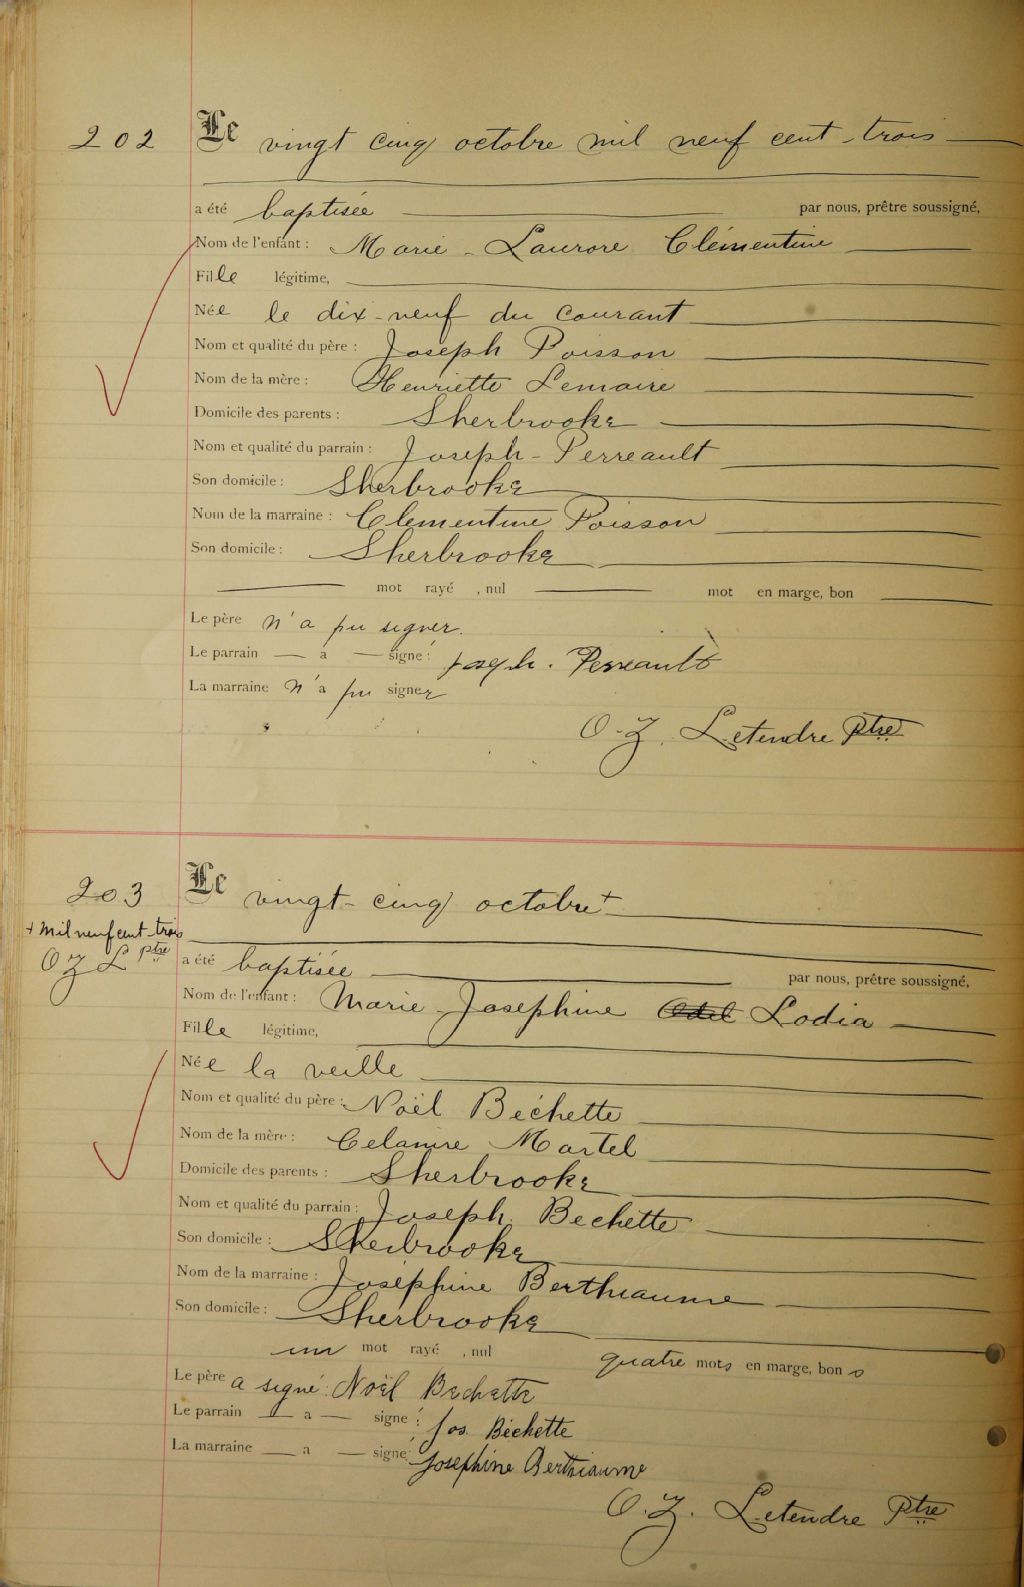 202 Le vingt cinq octobre mil neuf cent trois
a été baptisée par nous, prêtre soussigné,
Nom de l'enfant : Marie - Laurore Clémentine
Fille légitime,
Née le dix-neuf du courant
Nom et qualité du père : Joseph Poisson
Nom de la mère : Henriette Lemaire
Domicile des parents : Sherbrooke
Nom et qualité du parrain : Joseph - Perreault
Son domicile : Sherbrooke
Nom de la marraine : Clementine Poisson
Son domicile : Sherbrooke
mot rayé , nul mot en marge, bon
Le père n'a pu signer.
Le parrain a signé : Joseph. Perreault
La marraine n'a pu signer
O. Z. Letendre Ptre
203 Le vingt-cinq octobre +
+ Mil neuf cent trois
O Z L Ptre
a été baptisée par nous, prêtre soussigné,
Nom de l'enfant : Marie - Josephine Odel Lodia
Fille légitime,
Née la veille
Nom et qualité du père : Noël Béchette
Nom de la mère : Celanire Martel
Domicile des parents : Sherbrooke
Nom et qualité du parrain : Joseph Bechette
Son domicile : Sherbrooke
Nom de la marraine : Joséphine Berthiaume
Son domicile : Sherbrooke
un mot rayé , nul quatre mots en marge, bons
Le père a signé : Noël Bechette
Le parrain a signé : Jos. Béchette
La marraine a signé : Josephine Berthiaume
O. Z. Letendre Ptre